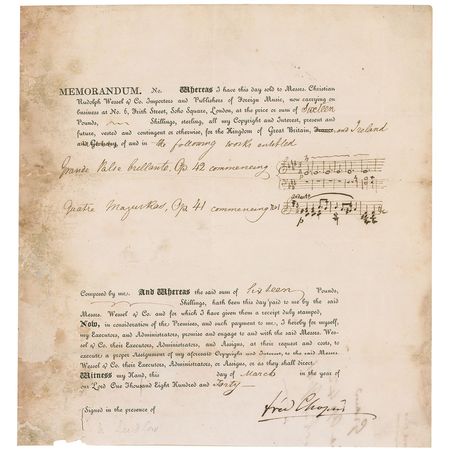 MEMORANDUM. No. Whereas I have this day sold to Messrs. Christian
Rudolph Wessel & Co. Importers and Publishers of Foreign Music, now carrying on
business at No. 6, Frith Street, Soho Square, London, at the price or sum of Sixteen
Pounds, Shillings, sterling, all my Copyright and Interest, present and
future, vested and contingent or otherwise, for the Kingdom of Great Britain, France, and Ireland
and Germany, of and in the following works entitled
Grande Valse brillante, Op 42 commencing
Quatre Mazurkas, Op 41 commencing No 1
Composed by me: And Whereas the said sum of Sixteen Pounds,
Shillings, hath been this day paid to me by the said
Messrs. Wessel & Co. and for which I have given them a receipt duly stamped,
Now, in consideration of the Premises, and such payment to me, I hereby for myself,
my Executors, and Administrators, promise and engage to and with the said Messrs. Wes-
sel & Co. their Executors, Administrators, and Assigns, at their request and costs, to
execute a proper Assignment of my aforesaid Copyright and Interest, to the said Messrs.
Wessel & Co. their Executors, Administrators, or Assigns, or as they shall direct.
Witness my Hand, this day of March in the year of
our Lord One Thousand Eight Hundred and Forty
Signed in the presence of
Fréd Chopin